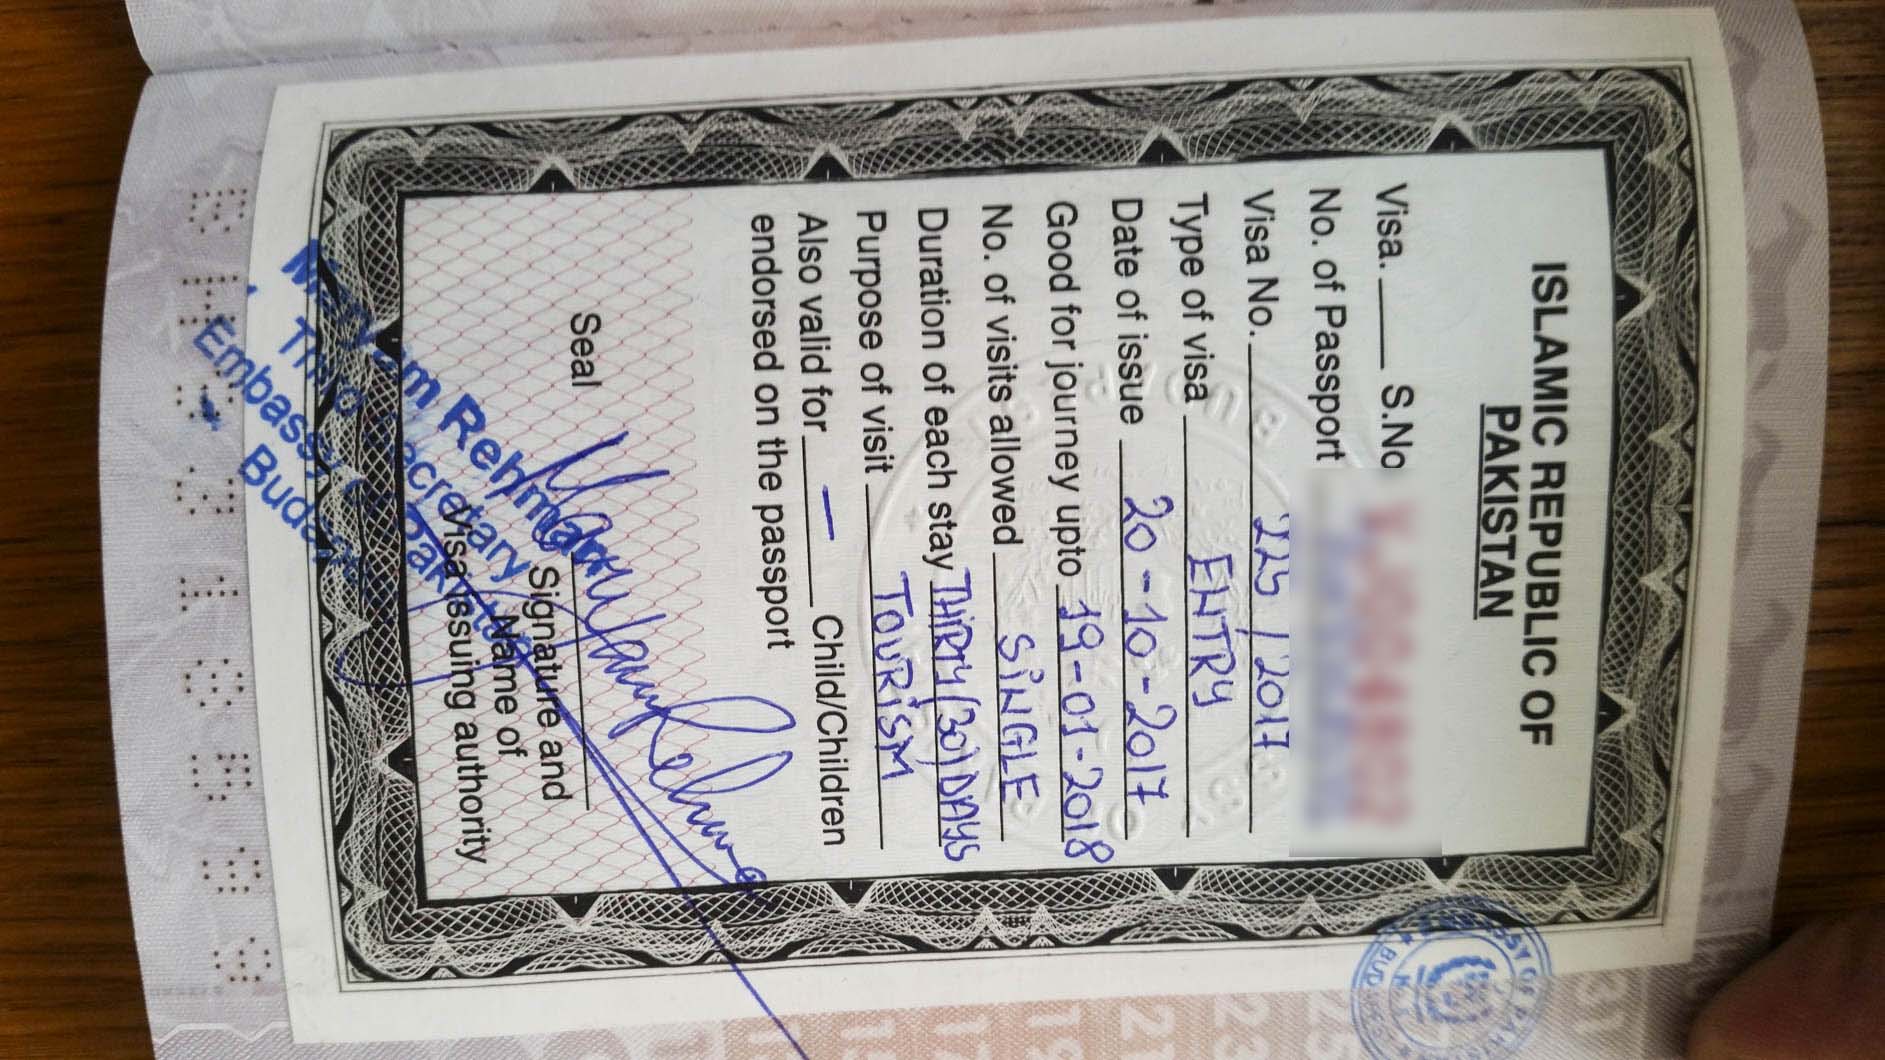 ISLAMIC REPUBLIC OF
PAKISTAN
Visa. ____ S.No
No. of Passport
Visa No. 225/2017
Type of visa ENTRY
Date of issue 20-10-2017
Good for journey upto 19-01-2018
No. of visits allowed SiNGLE
Duration of each stay THiRTY(30)DAYS
Purpose of visit TOURiSM
Also valid for — Child/Children
endorsed on the passport
Seal
Signature and
Name of
Visa issuing authority
Rehman
Secretary
Embassy
31
25
23
21
19
17
15